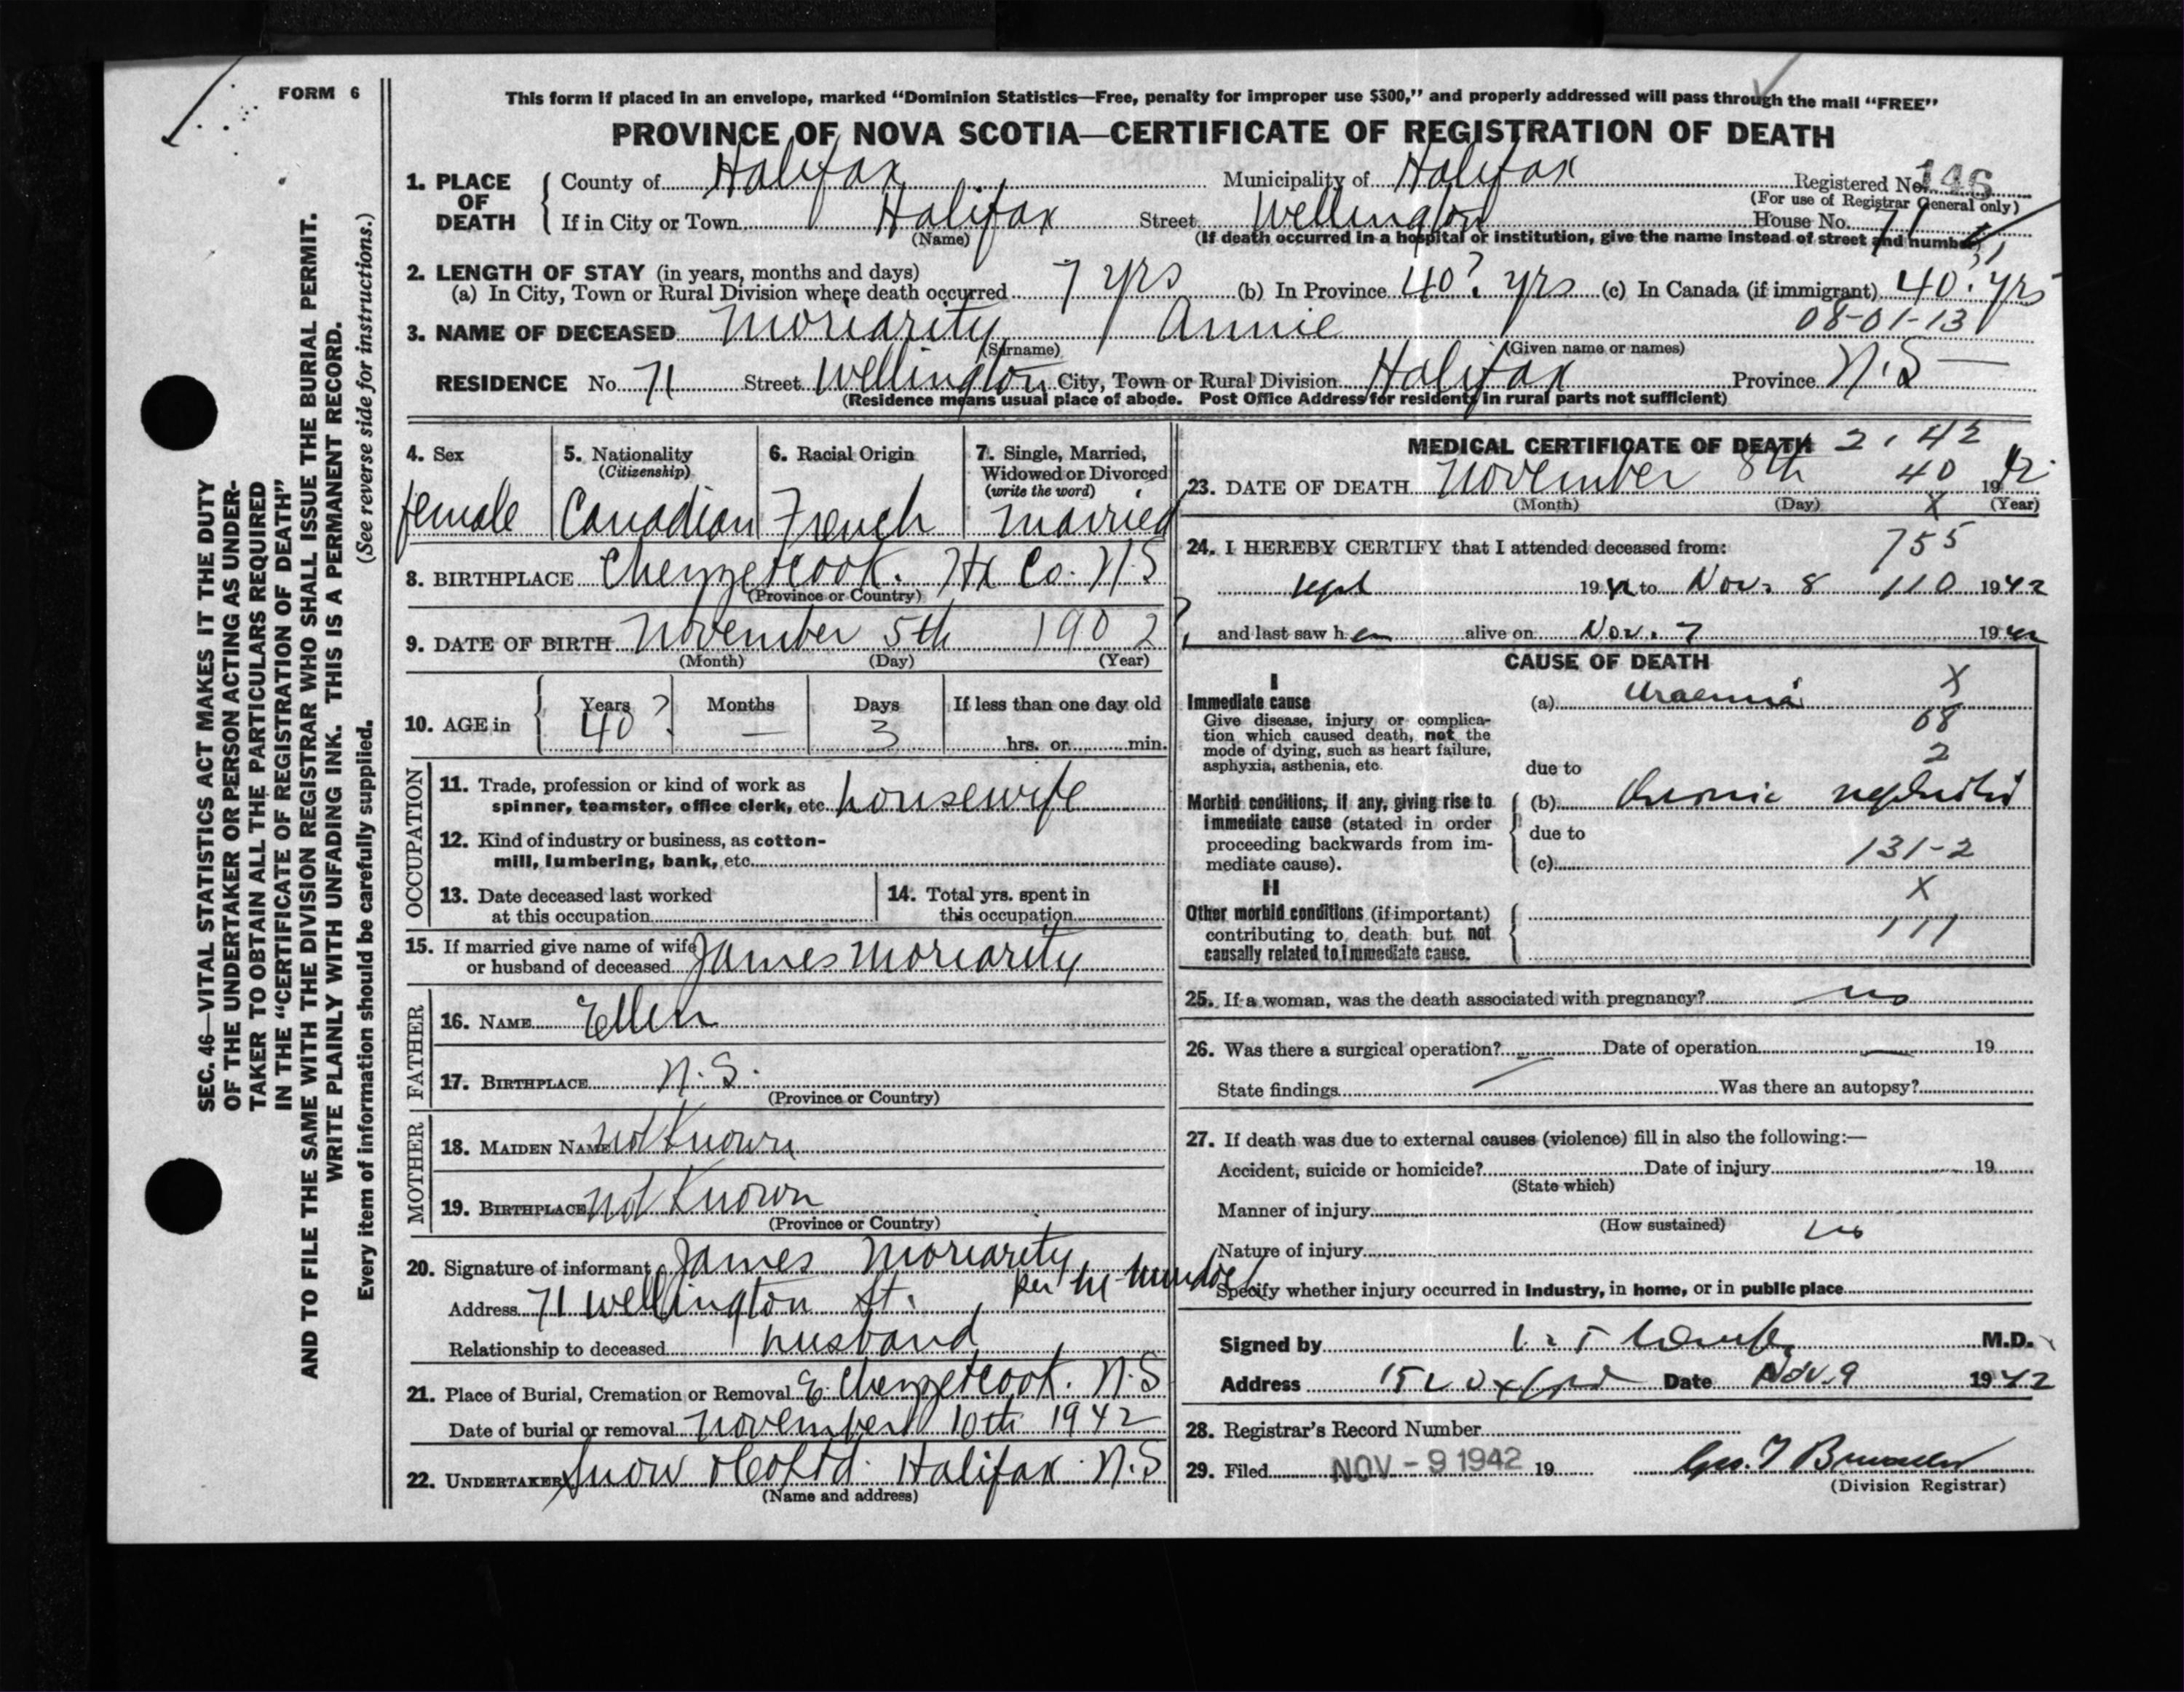 FORM 6
This form if placed in an envelope, marked “Dominion Statistics—Free, penalty for improper use $300,” and properly addressed will pass through the mail “FREE”
PROVINCE OF NOVA SCOTIA—CERTIFICATE OF REGISTRATION OF DEATH
1. PLACE OF DEATH
County of Halifax Municipality of Halifax Registered No. 146
(For use of Registrar General only)
If in City or Town Halifax Street Wellington House No. 71
(Name) (If death occurred in a hospital or institution, give the name instead of street and number)
2. LENGTH OF STAY (in years, months and days)
(a) In City, Town or Rural Division where death occurred 7 yrs (b) In Province 40? yrs (c) In Canada (if immigrant) 40? yrs
08-01-13
3. NAME OF DECEASED Moriarity Annie
(Surname) (Given name or names)
RESIDENCE No. 71 Street Wellington City, Town or Rural Division Halifax Province N.S
(Residence means usual place of abode. Post Office Address for residents in rural parts not sufficient)
4. Sex
female
5. Nationality
(Citizenship)
Canadian
6. Racial Origin
French
7. Single, Married, Widowed or Divorced
(write the word)
married
8. BIRTHPLACE Chezzetcook. Hx Co. N.S
(Province or Country)
9. DATE OF BIRTH November 5th 1902?
(Month) (Day) (Year)
10. AGE in Years Months Days If less than one day old
40? — 3 hrs. or min.
OCCUPATION
11. Trade, profession or kind of work as
spinner, teamster, office clerk, etc. housewife
12. Kind of industry or business, as cotton-
mill, lumbering, bank, etc.
13. Date deceased last worked
at this occupation
14. Total yrs. spent in
this occupation
15. If married give name of wife
or husband of deceased James Moriarity
FATHER
16. NAME Ellen
17. BIRTHPLACE N.S.
(Province or Country)
MOTHER
18. MAIDEN NAME not Known
19. BIRTHPLACE not Known
(Province or Country)
20. Signature of informant James Moriarity
per
Address 71 Wellington St.
Relationship to deceased husband
21. Place of Burial, Cremation or Removal E. Chezzetcook. N.S
Date of burial or removal November 10th 1942
22. UNDERTAKER Snow & Co Ltd. Halifax N.S
(Name and address)
MEDICAL CERTIFICATE OF DEATH 2.42
23. DATE OF DEATH November 8th 40 1942
(Month) (Day) X (Year)
24. I HEREBY CERTIFY that I attended deceased from: 755
Sept 1942 to Nov. 8 110 1942
and last saw her alive on Nov. 7 1942
CAUSE OF DEATH
I
Immediate cause
Give disease, injury or complica-
tion which caused death, not the
mode of dying, such as heart failure,
asphyxia, asthenia, etc.
(a) Uraemia X
68
2
due to
Morbid conditions, if any, giving rise to
immediate cause (stated in order
proceeding backwards from im-
mediate cause).
(b) Chronic nephritis
due to
(c) 131-2
II
Other morbid conditions (if important)
contributing to death but not
causally related to immediate cause.
X
111
25. If a woman, was the death associated with pregnancy? no
26. Was there a surgical operation? Date of operation 19
State findings Was there an autopsy?
27. If death was due to external causes (violence) fill in also the following:—
Accident, suicide or homicide? Date of injury 19
(State which)
Manner of injury
(How sustained) no
Nature of injury
Specify whether injury occurred in Industry, in home, or in public place
Signed by M.D.
Address Oxford Date Nov. 9 1942
28. Registrar's Record Number
29. Filed NOV - 9 1942 19
(Division Registrar)
SEC. 46—VITAL STATISTICS ACT MAKES IT THE DUTY
OF THE UNDERTAKER OR PERSON ACTING AS UNDER-
TAKER TO OBTAIN ALL THE PARTICULARS REQUIRED
IN THE “CERTIFICATE OF REGISTRATION OF DEATH”
AND TO FILE THE SAME WITH THE DIVISION REGISTRAR WHO SHALL ISSUE THE BURIAL PERMIT.
WRITE PLAINLY WITH UNFADING INK. THIS IS A PERMANENT RECORD.
Every item of information should be carefully supplied. (See reverse side for instructions.)